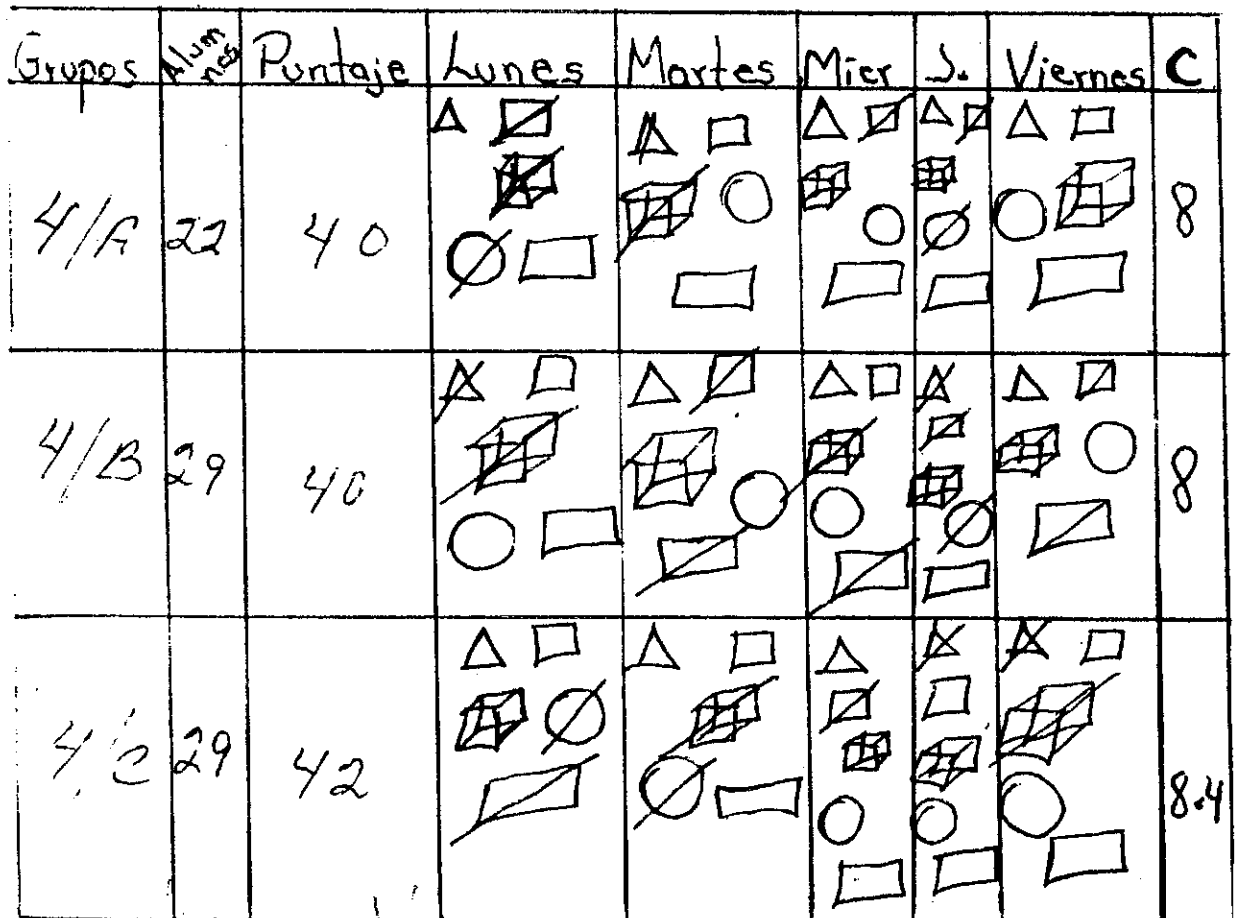 Grupos Alumnos Puntaje Lunes Martes Mier J. Viernes C
4/A 22 40 8
4/B 29 40 8
4/C 29 42 8.4